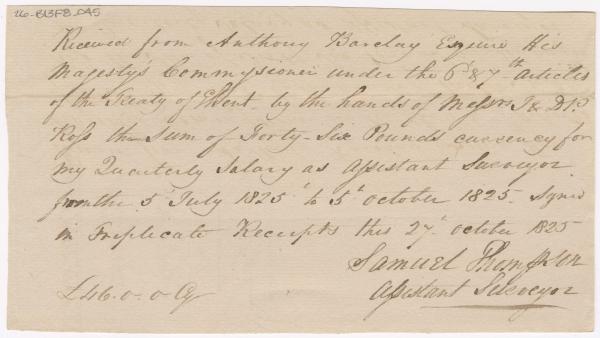 26-B13F8.045
Received from Anthony Barclay Esquire His
Magesty's Commyssioner under the 6 & 7th articles
of the Treaty of Ghent by the hands of Messrs J & D
Ross the Sum of Forty-Six Pounds currency for
my Quarterly Salary as Assistant Surveyor
from the 5 July 1825 to 5t october 1825. Signed
in Triplicate Receipts this 27t october 1825
Samuel Thompson
£46.0-0 Cy Assistant Surveyor